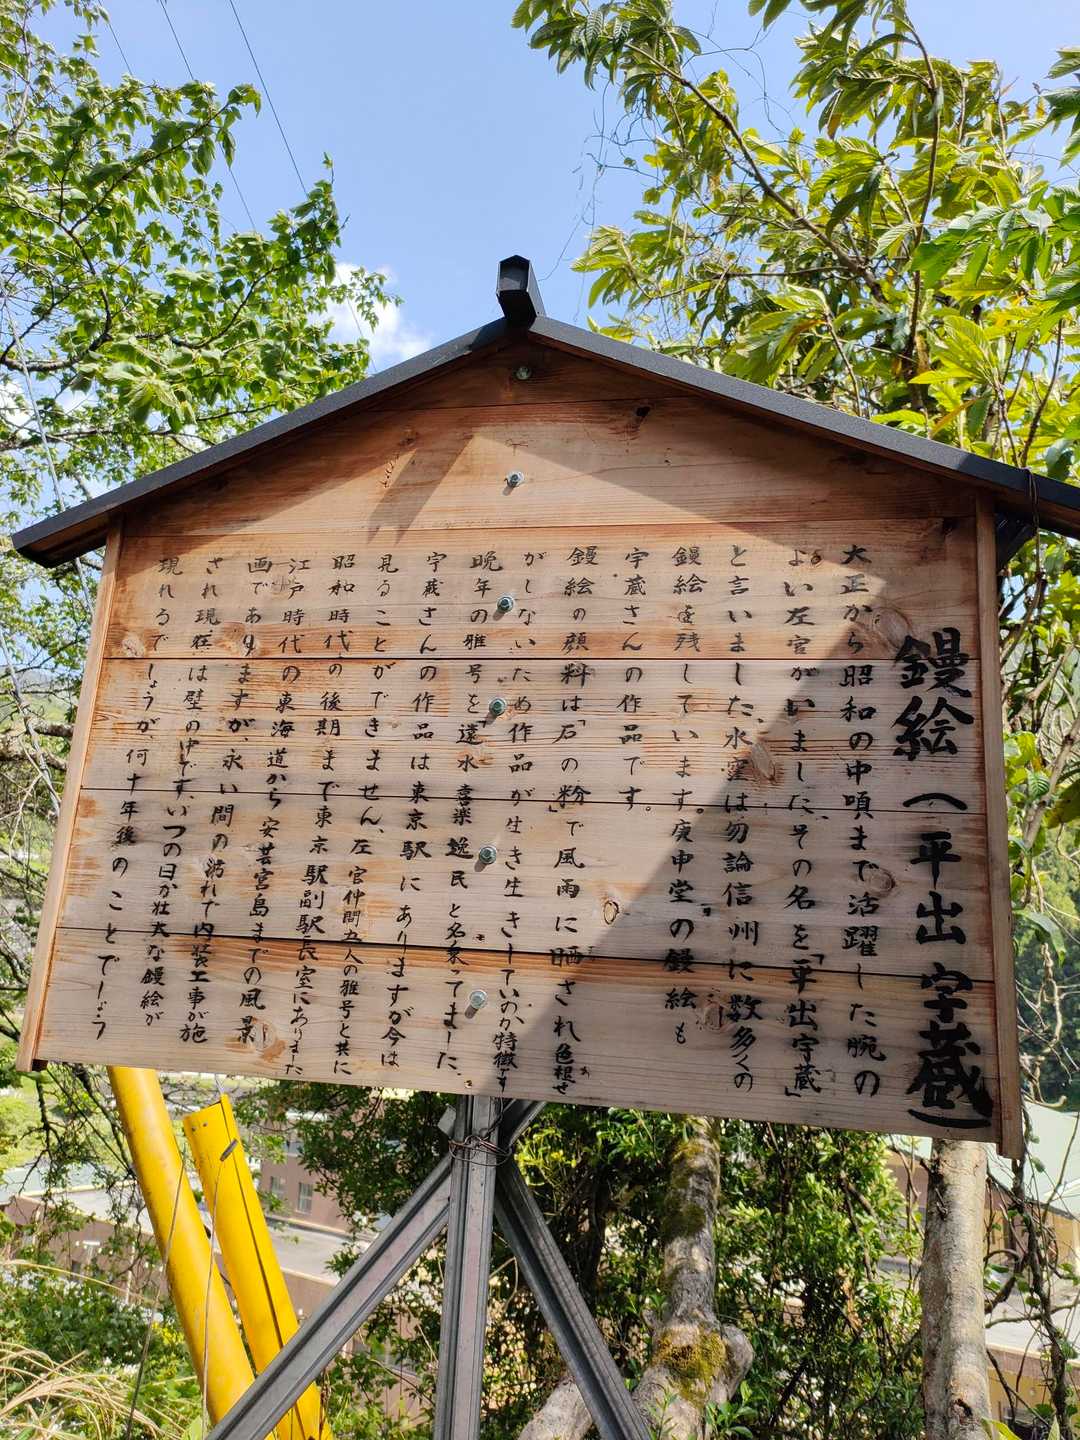 鏝絵(平出 宇蔵)
大正から昭和の中頃まで活躍した腕の
よい左官がいました、その名を「平出宇蔵」
と言いました、水窪は勿論信州に数多くの
鏝絵を残しています。庚申堂の鏝絵も
宇蔵さんの作品です。
鏝絵の顔料は「石の粉」で風雨に晒され色褪せ
がしないため作品が生き生きしているのが特徴です
晩年の雅号を「遠水 喜楽 逸民 と名乗ってました、
宇蔵さんの作品は東京駅にありますが今は
見ることができません、左官仲間五人の雅号と共に
昭和時代の後期まで東京駅副駅長室にありました
江戸時代の東海道から安芸宮島までの風景
画でありますが、永い間の汚れで内装工事が施
され現在は壁の中です、いつの日か壮大な鏝絵が
現れるでしょうが、何十年後のことでしょう